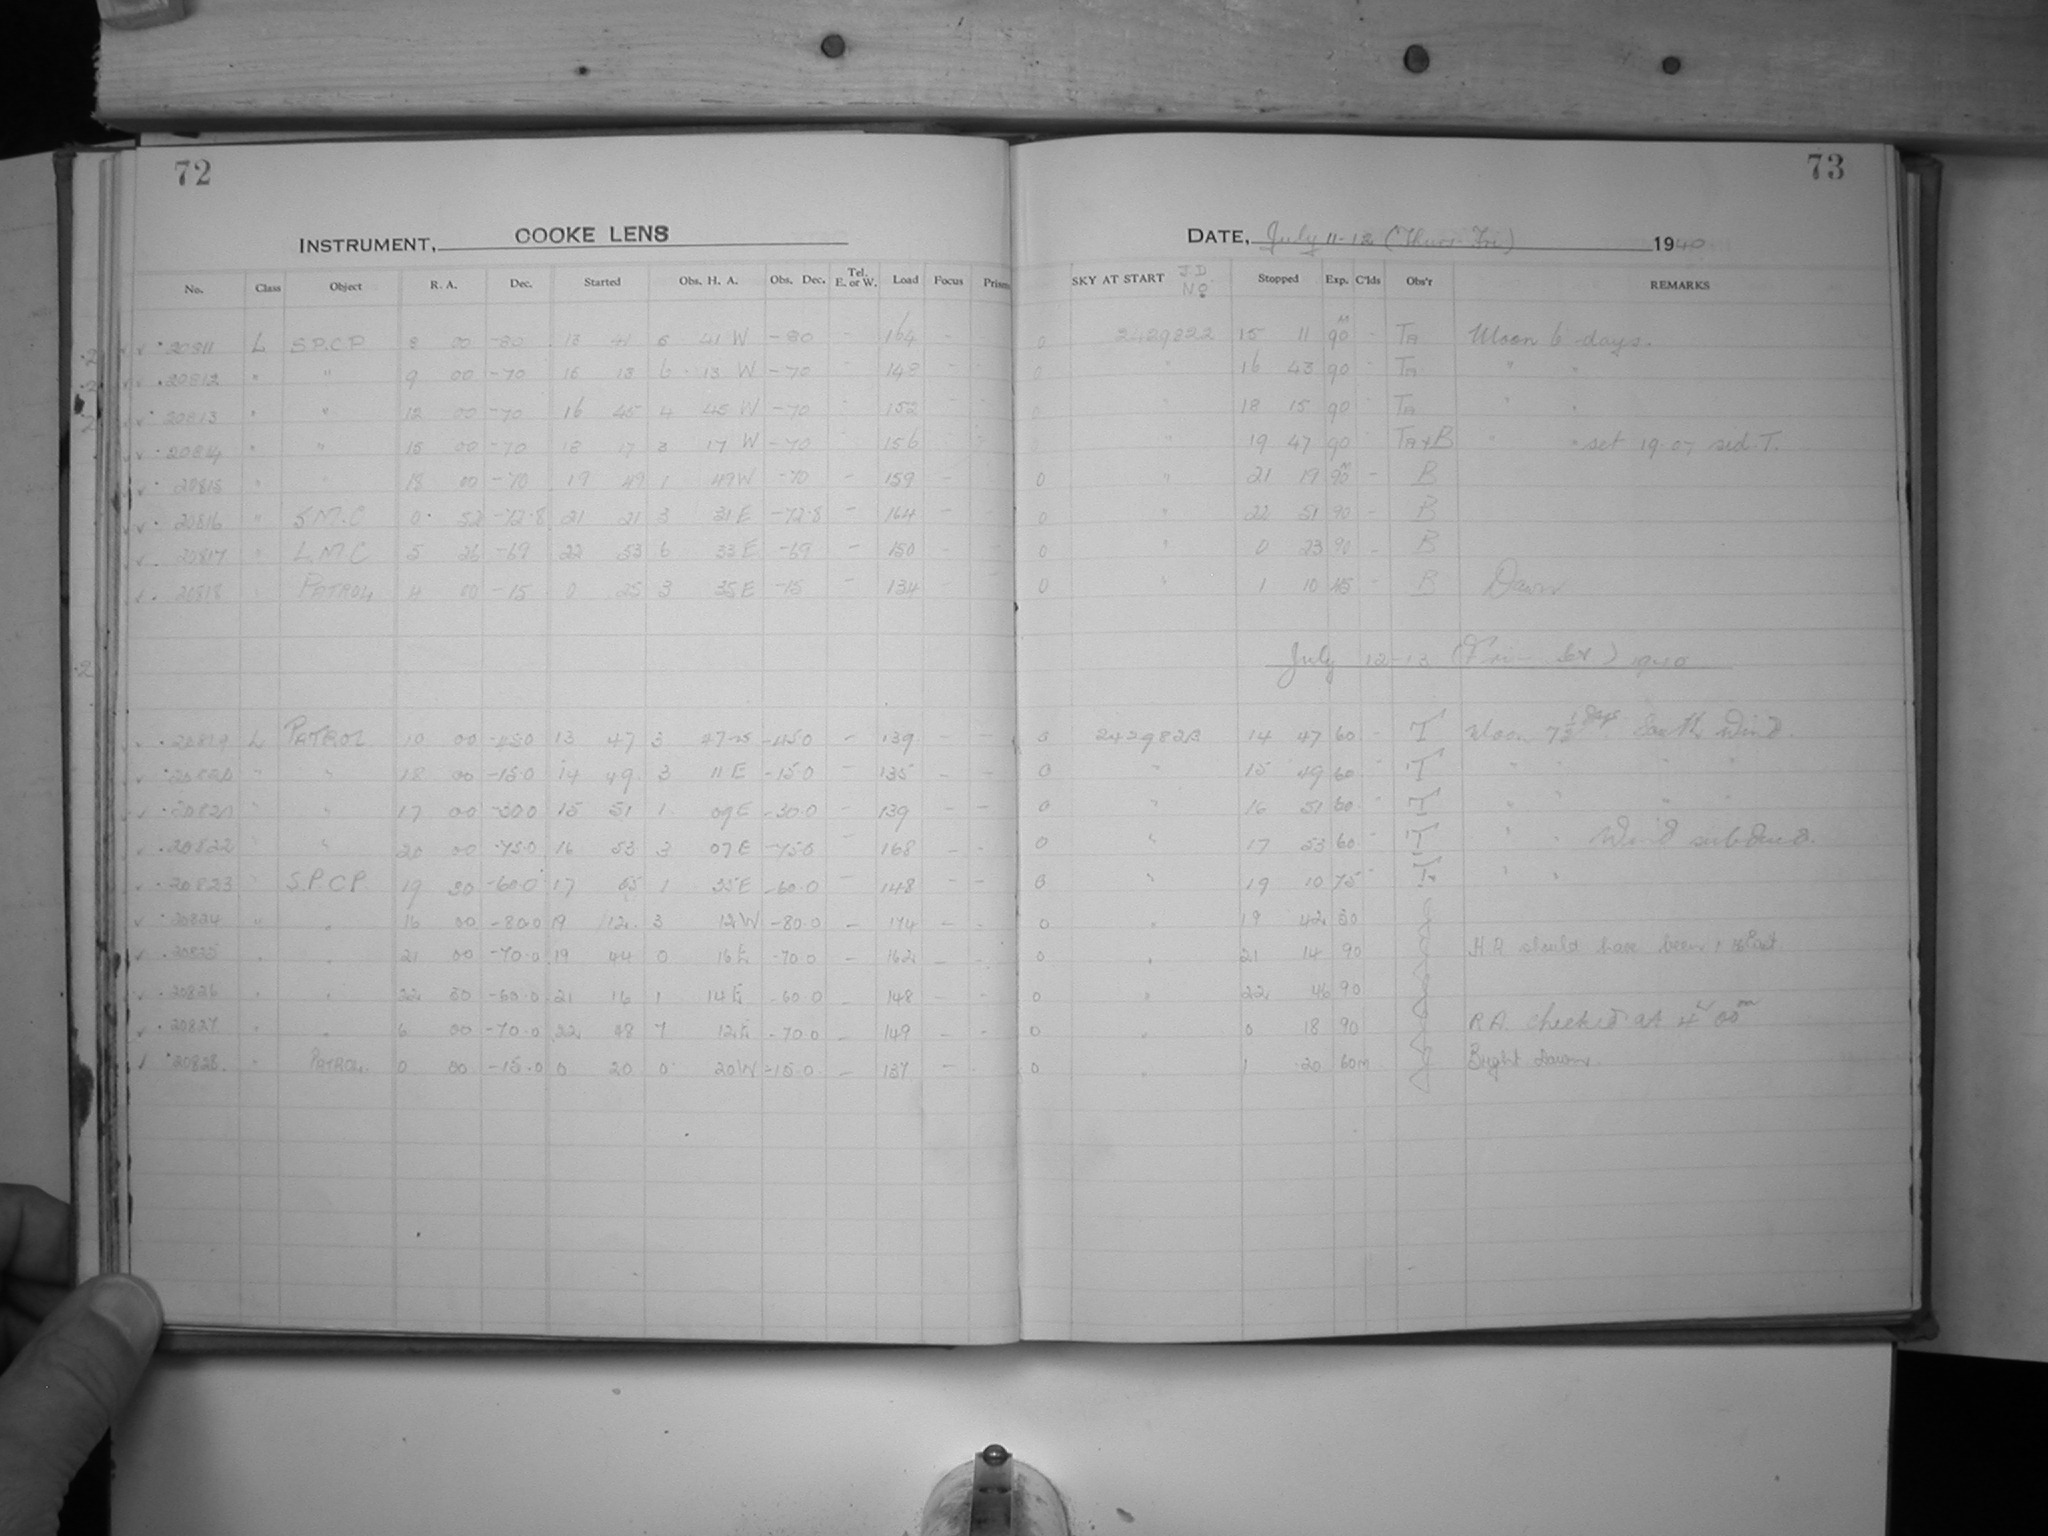 72
INSTRUMENT, COOKE LENS
No. Class Object R. A. Dec. Started Obs. H. A. Obs. Dec. Tel. E. or W. Load Focus Prism
20811 L S.P.C.P. 8 00 -80 13 41 5 41 W -80 - 164 -
20812 " " 9 00 -70 15 13 6 13 W -70 - 148 -
20813 " " 12 00 -70 16 45 4 45 W -70 152 -
20814 " " 15 00 -70 18 17 3 17 W -70 156 -
20815 " " 18 00 -70 19 49 1 49 W -70 - 159 -
20816 " S.M.C 0 52 -72.8 21 21 3 31 E -72.8 - 164 -
20817 " L.M.C 5 26 -69 22 53 6 33 E -69 - 150 -
20818 " PATROL 4 00 -15 0 25 3 35 E -15 - 134 -
20819 L PATROL 10 00 -45.0 13 47 3 47 -45.0 - 139 -
20820 " " 18 00 -15.0 14 49 3 11 E -15.0 - 135 - -
20821 " " 17 00 -30.0 15 51 1 09 E -30.0 - 139 - -
20822 " " 20 00 -75.0 16 53 3 07 E -75.0 - 168 - -
20823 " S.P.C.P. 19 30 -60.0 17 55 1 35 E -60.0 - 148 - -
20824 " " 16 00 -80.0 19 12 3 12 W -80.0 - 174 - -
20825 " " 21 00 -70.0 19 44 0 16 E -70.0 - 162 - -
20826 " " 22 30 -60.0 21 16 1 14 E -60.0 - 148 - -
20827 " " 6 00 -70.0 22 48 7 12 E -70.0 - 149 - -
20828 " PATROL 0 00 -15.0 0 20 0 20 W -15.0 - 137 - -
73
DATE, July 11-12 (Thurs-Fri) 1940
SKY AT START J.D. No Stopped Exp. C'lds Obs'r REMARKS
0 2429822 15 11 90 M - TA Moon 6 days.
0 " 16 43 90 - TA " "
0 " 18 15 90 - TA " "
" 19 47 90 - TA+B " " set 19.07 sid. T.
0 " 21 19 90 M - B
0 " 22 51 90 - B
0 " 0 23 90 - B
0 " 1 10 45 - B Dawn
July 12-13 (Fri- Sat) 1940
0 2429823 14 47 60 - T Moon 7½ days South Wind.
0 " 15 49 60 - T " " " "
0 " 16 51 60 - T " " " "
0 " " 17 53 60 - T " " Wind subdued.
0 " 19 10 75 - " "
0 " 19 42 30
0 " 21 14 90 H A should have been 1 16 East
0 " 22 46 90
0 " 0 18 90 R A. checked at 4 00 m
0 " 1 20 60m Bright Dawn.